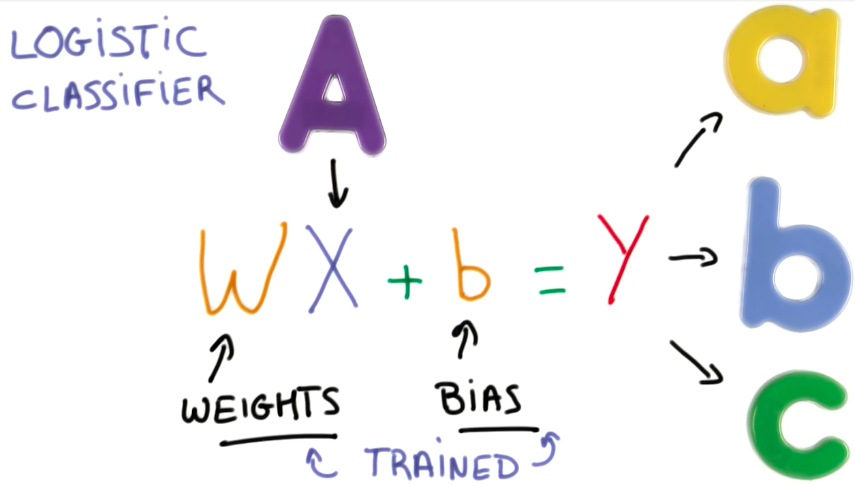 LOGISTIC
CLASSIFIER
A
a
W X + b = Y
b
WEIGHTS
BIAS
c
TRAINED